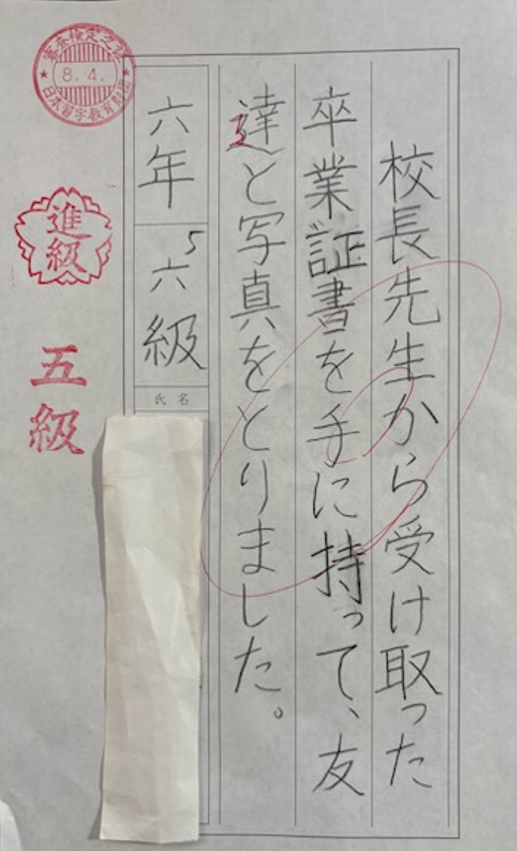 校長先生から受け取った
卒業証書を手に持って、友
達と写真をとりました。
六年
5
六級
氏名
8.4.
日本習字教育財団
進級
五級